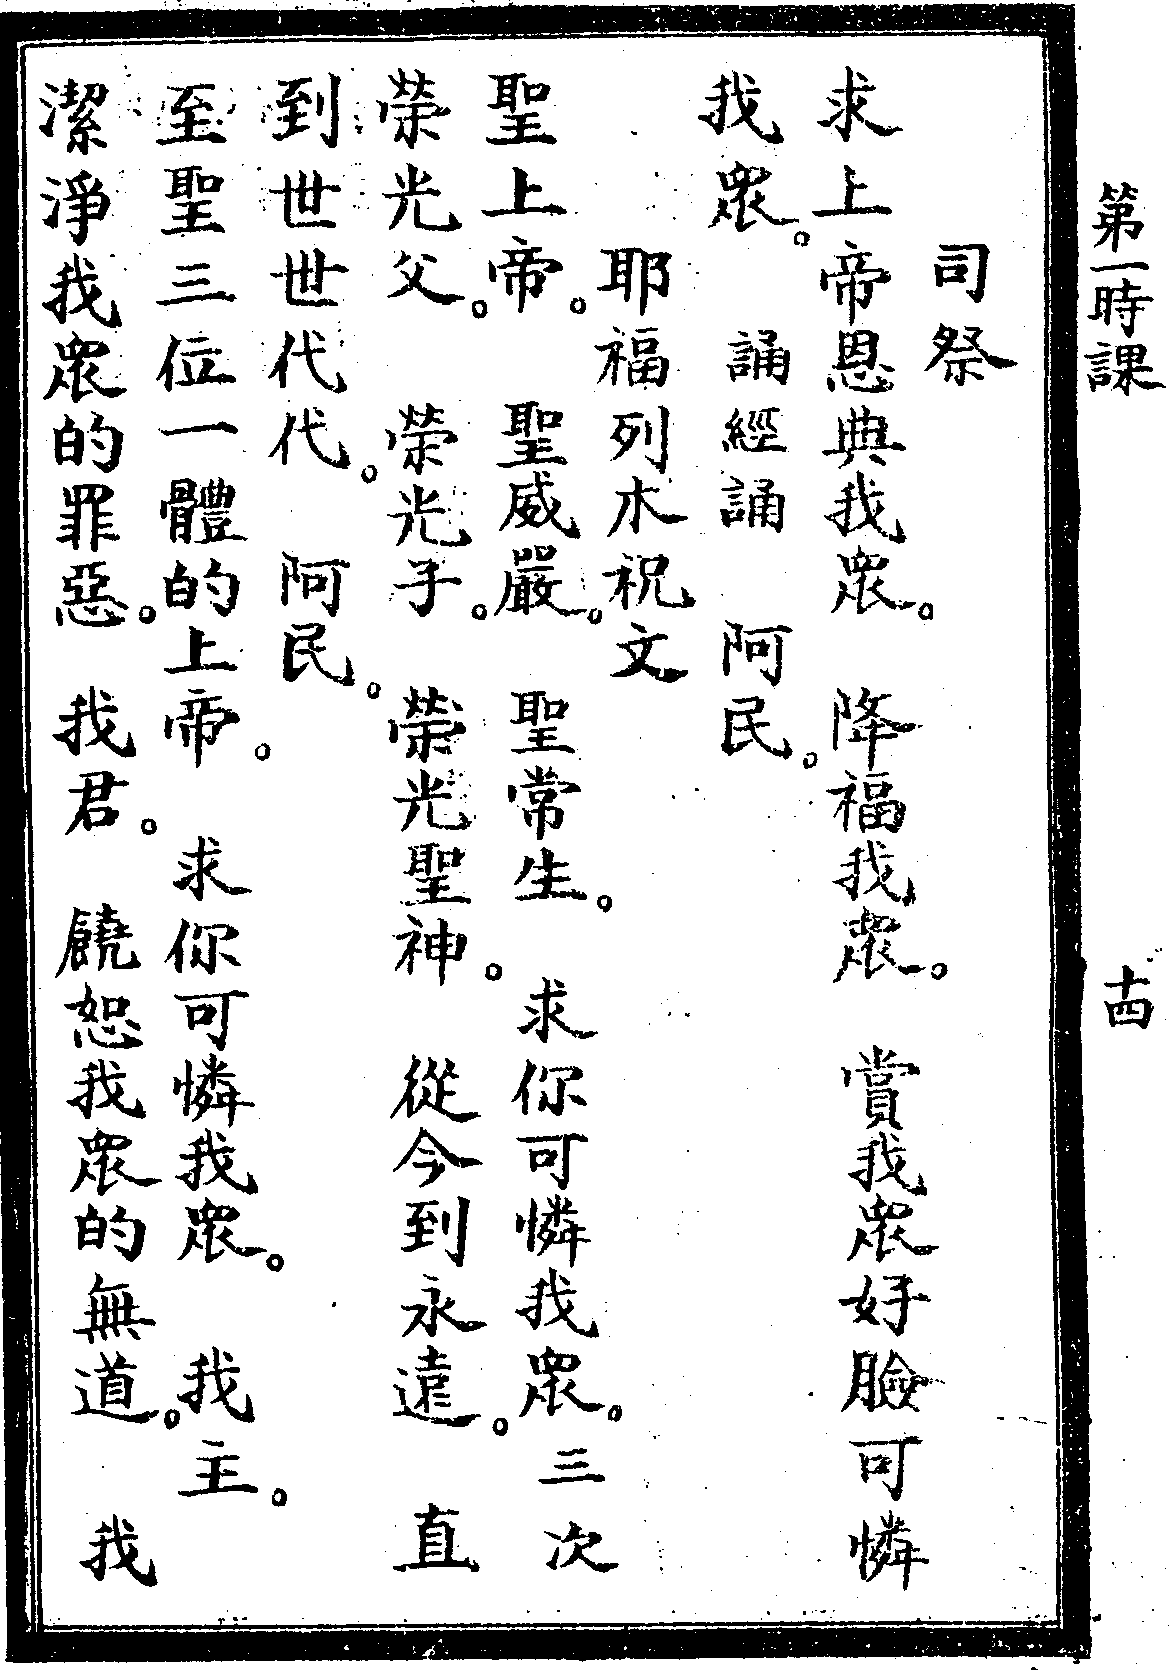 第一時課
十四
司祭
求上帝恩典我衆。降福我衆。賞我衆好臉可憐
我衆。誦經誦阿民。
耶福列木祝文
聖上帝。聖威嚴。聖常生。求你可憐我衆。三次
榮光父。榮光子。榮光聖神。從今到永遠。直
到世世代代。阿民。
至聖三位一體的上帝。求你可憐我衆。我主。
潔淨我衆的罪惡。我君。饒恕我衆的無道。我